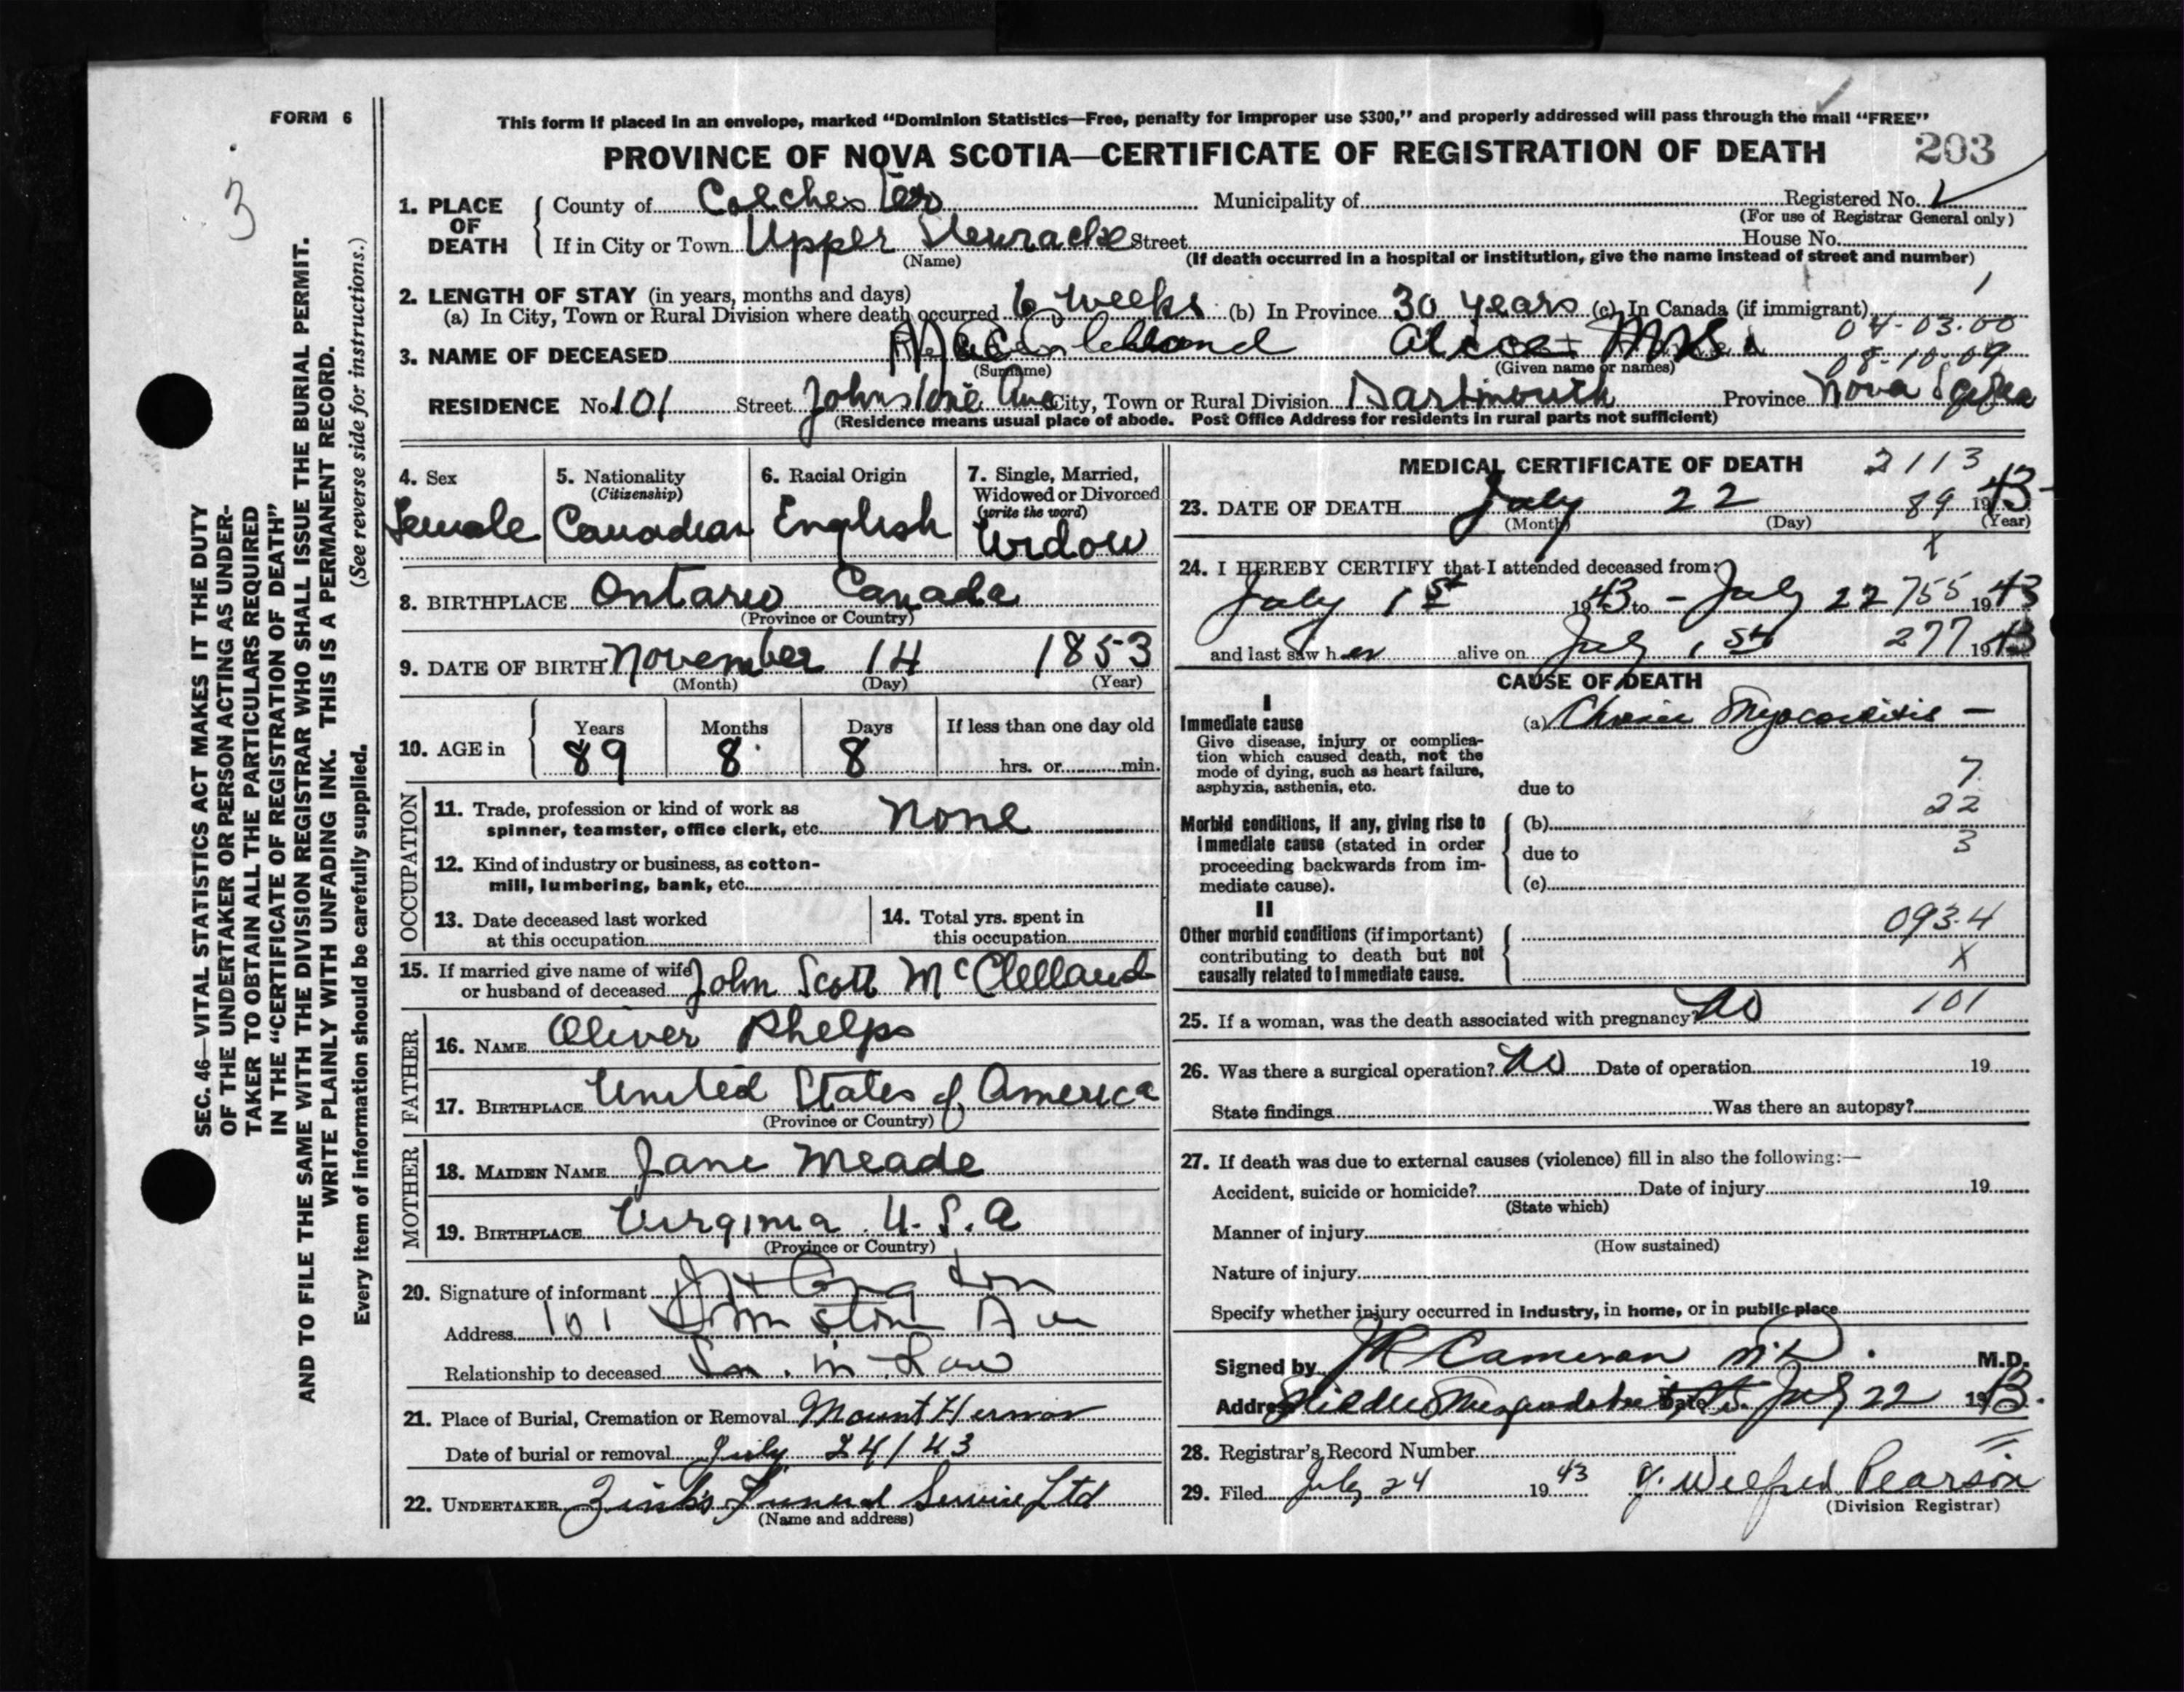 FORM 6
This form if placed in an envelope, marked “Dominion Statistics—Free, penalty for improper use $300,” and properly addressed will pass through the mail “FREE”
PROVINCE OF NOVA SCOTIA—CERTIFICATE OF REGISTRATION OF DEATH 203
3
SEC. 46—VITAL STATISTICS ACT MAKES IT THE DUTY
OF THE UNDERTAKER OR PERSON ACTING AS UNDER-
TAKER TO OBTAIN ALL THE PARTICULARS REQUIRED
IN THE “CERTIFICATE OF REGISTRATION OF DEATH”
AND TO FILE THE SAME WITH THE DIVISION REGISTRAR WHO SHALL ISSUE THE BURIAL PERMIT.
WRITE PLAINLY WITH UNFADING INK. THIS IS A PERMANENT RECORD.
Every item of information should be carefully supplied. (See reverse side for instructions.)
1. PLACE OF DEATH
County of Colchester Municipality of Registered No.
(For use of Registrar General only)
If in City or Town Upper Stewiacke Street House No.
(Name) (If death occurred in a hospital or institution, give the name instead of street and number)
2. LENGTH OF STAY (in years, months and days) 1
(a) In City, Town or Rural Division where death occurred 6 weeks (b) In Province 30 years (c) In Canada (if immigrant)
04-03-00
3. NAME OF DECEASED McClelland Alice Mrs
(Surname) (Given name or names) 08-10-09
RESIDENCE No. 101 Street Johnstone Ave City, Town or Rural Division Dartmouth Province Nova Scotia
(Residence means usual place of abode. Post Office Address for residents in rural parts not sufficient)
4. Sex Female
5. Nationality (Citizenship) Canadian
6. Racial Origin English
7. Single, Married, Widowed or Divorced (write the word) Widow
8. BIRTHPLACE Ontario Canada
(Province or Country)
9. DATE OF BIRTH November 14 1853
(Month) (Day) (Year)
10. AGE in Years Months Days If less than one day old
89 8 8 hrs. or min.
OCCUPATION
11. Trade, profession or kind of work as
spinner, teamster, office clerk, etc. None
12. Kind of industry or business, as cotton-
mill, lumbering, bank, etc.
13. Date deceased last worked
at this occupation
14. Total yrs. spent in
this occupation
15. If married give name of wife
or husband of deceased John Scott McClelland
FATHER
16. NAME Oliver Phelps
17. BIRTHPLACE United States of America
(Province or Country)
MOTHER
18. MAIDEN NAME Jane Meade
19. BIRTHPLACE Virginia U.S.A
(Province or Country)
20. Signature of informant
Address 101 Johnstone Ave
Relationship to deceased Son. in Law
21. Place of Burial, Cremation or Removal Mount Hermon
Date of burial or removal July 24/43
22. UNDERTAKER Zink's Funeral Service Ltd
(Name and address)
MEDICAL CERTIFICATE OF DEATH 2113
23. DATE OF DEATH July 22 89 1943
(Month) (Day) (Year)
x
24. I HEREBY CERTIFY that I attended deceased from:
July 1st 1943 to - July 22 755 1943
and last saw her alive on July 1st 277 1943
CAUSE OF DEATH
I
Immediate cause (a) Chronic Myocarditis —
Give disease, injury or complica-
tion which caused death, not the
mode of dying, such as heart failure,
asphyxia, asthenia, etc. due to 7
22
Morbid conditions, if any, giving rise to (b)
immediate cause (stated in order due to 3
proceeding backwards from im-
mediate cause). (c)
II
Other morbid conditions (if important) 093.4
contributing to death but not
causally related to immediate cause. X
25. If a woman, was the death associated with pregnancy? No 101
26. Was there a surgical operation? No Date of operation 19
State findings Was there an autopsy?
27. If death was due to external causes (violence) fill in also the following:—
Accident, suicide or homicide? Date of injury 19
(State which)
Manner of injury
(How sustained)
Nature of injury
Specify whether injury occurred in industry, in home, or in public place
Signed by Cameron M.D. M.D.
Address Middle Musquodoboit Date July 22 1943.
28. Registrar's Record Number
29. Filed July 24 1943 J. Wilfred Pearson
(Division Registrar)